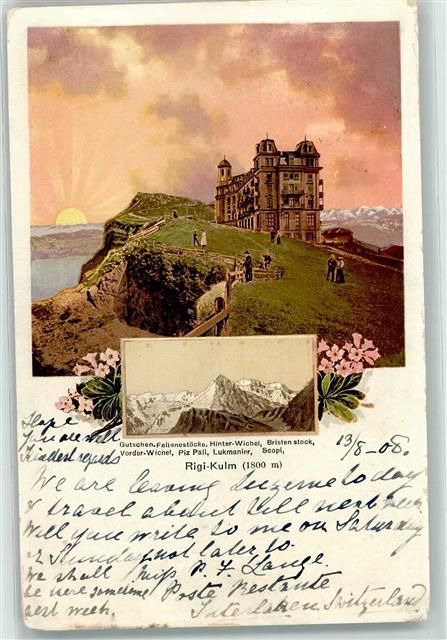 Gutschen, Fellenestöcke, Hinter-Wichel, Bristenstock,
Vorder-Wichel, Piz Pali, Lukmanier, Scopi,
Rigi-Kulm (1800 m)
Hope
you are well
Kindest regards
13/8-08.
We are leaving Luzerne today
& travel about till next week
Will you write to me on Saturday
or Sunday not later to
Miss P. F. Lange
Poste Restante
Interlaken Switzerland
We shall
be there sometime
next week.